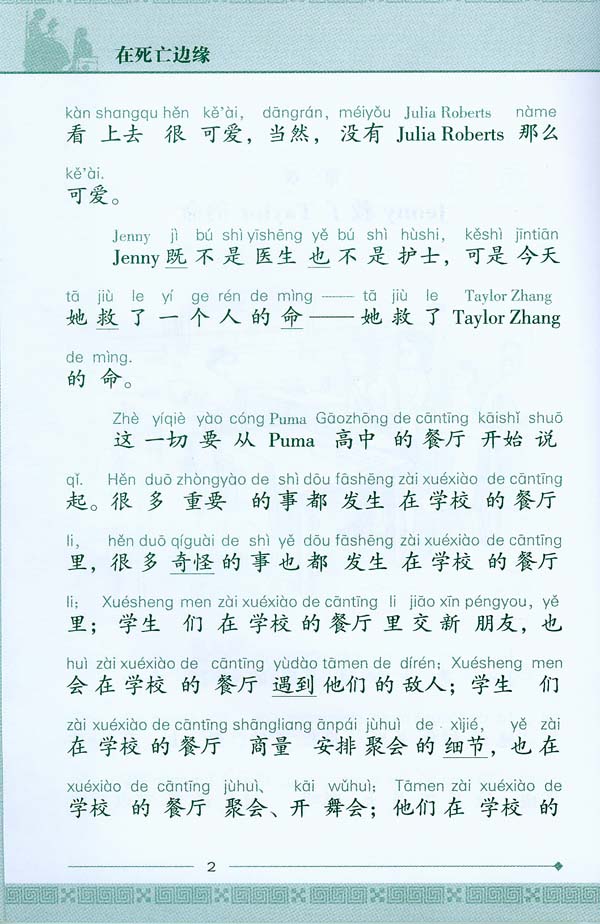 在死亡边缘
kàn shangqu hěn kě'ài, dāngrán, méiyǒu Julia Roberts nàme
看上去很可爱，当然，没有 Julia Roberts 那么
kě'ài.
可爱。
Jenny jì bú shì yīshēng yě bú shì hùshi, kěshì jīntiān
Jenny 既不是医生也不是护士，可是今天
tā jiù le yí ge rén de mìng —— tā jiù le Taylor Zhang
她救了一个人的命——她救了 Taylor Zhang
de mìng.
的命。
Zhè yíqiè yào cóng Puma Gāozhōng de cāntīng kāishǐ shuō
这一切要从 Puma 高中的餐厅开始说
qǐ. Hěn duō zhòngyào de shì dōu fāshēng zài xuéxiào de cāntīng
起。很多重要的事都发生在学校的餐厅
li, hěn duō qíguài de shì yě dōu fāshēng zài xuéxiào de cāntīng
里，很多奇怪的事也都发生在学校的餐厅
li; Xuésheng men zài xuéxiào de cāntīng li jiāo xīn péngyou, yě
里；学生们在学校的餐厅里交新朋友，也
huì zài xuéxiào de cāntīng yùdào tāmen de dírén; Xuésheng men
会在学校的餐厅遇到他们的敌人；学生们
zài xuéxiào de cāntīng shāngliang ānpái jùhuì de xìjié, yě zài
在学校的餐厅商量安排聚会的细节，也在
xuéxiào de cāntīng jùhuì、 kāi wǔhuì; Tāmen zài xuéxiào de
学校的餐厅聚会、开舞会；他们在学校的
2